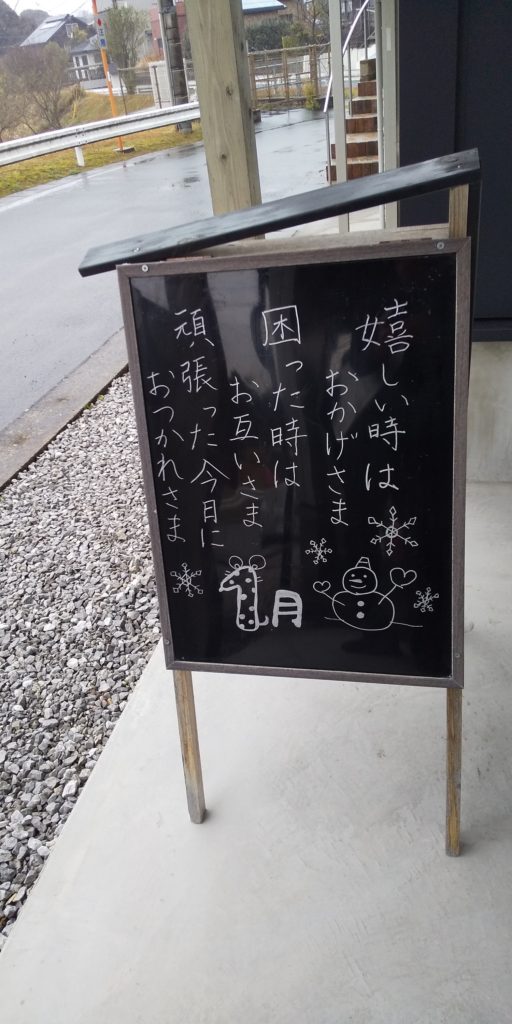 嬉しい時は
おかげさま
困った時は
お互いさま
頑張った今月に
おつかれさま
1月